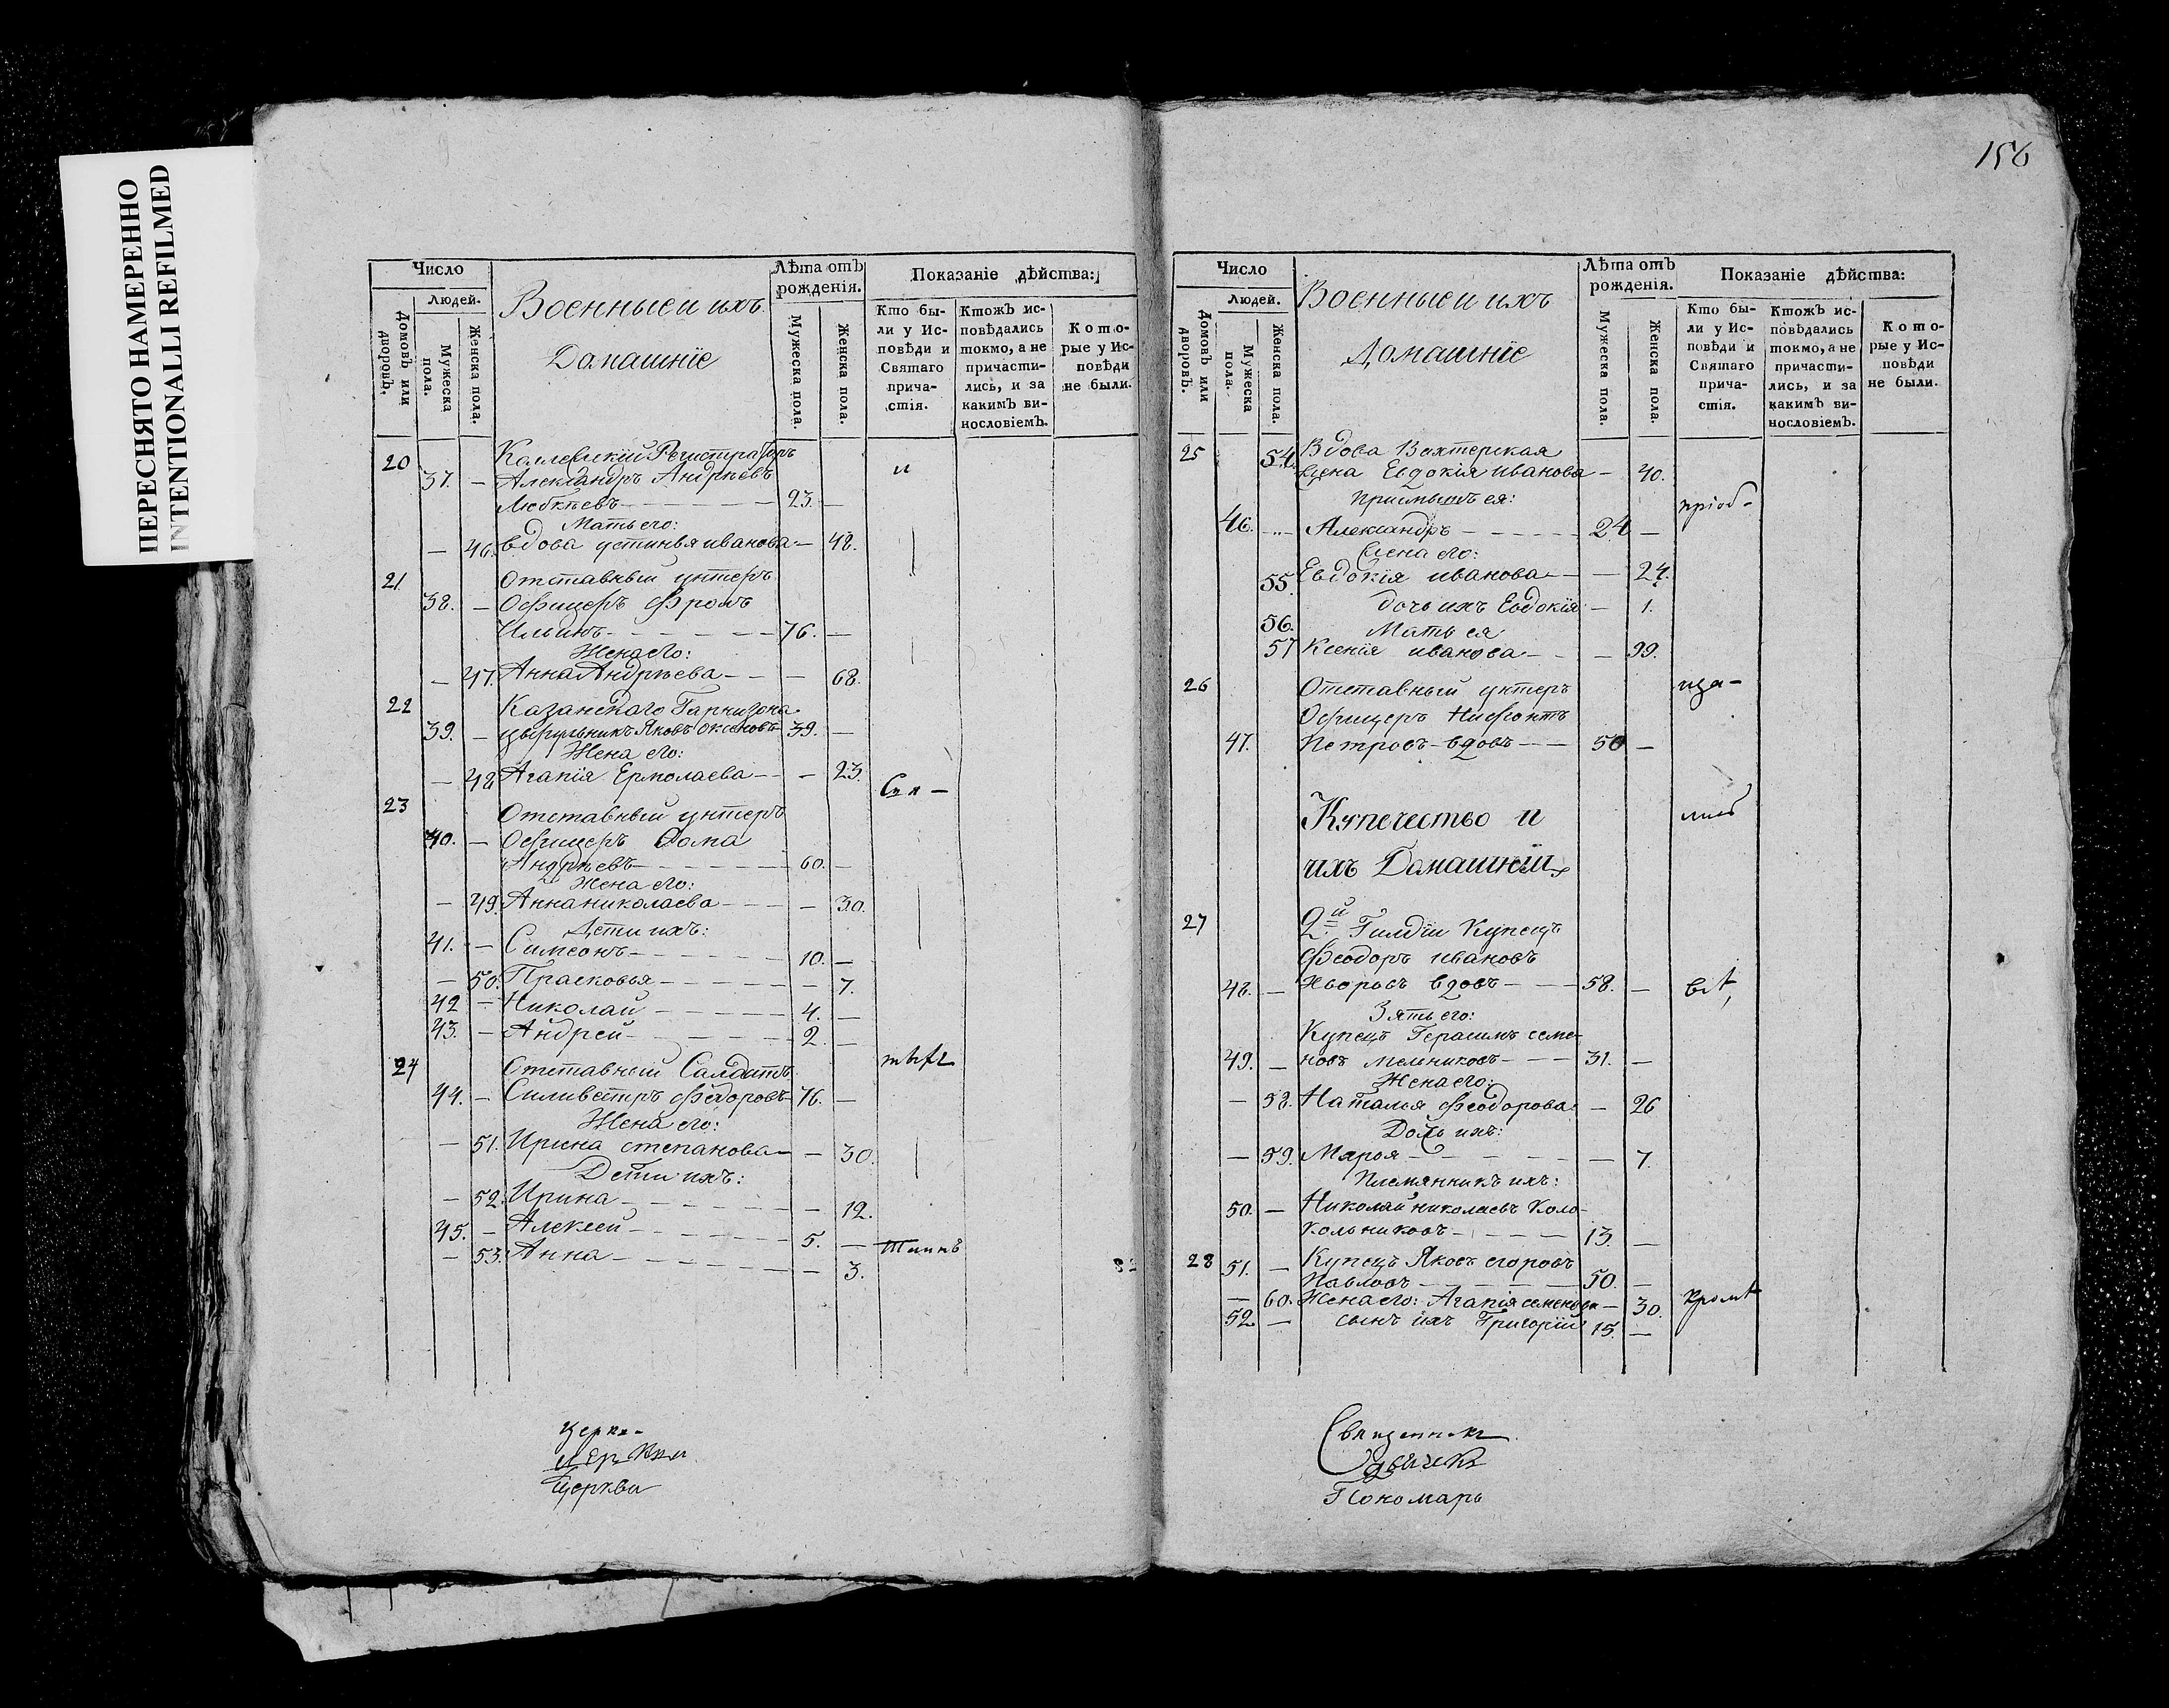 ПЕРЕСНЯТО НАМЕРЕННО
INTENTIONALLI REFILMED
Число
Людей.
Домовъ или дворовъ.
Мужеска пола.
Женска пола.
Военныеи ихъ
Домашніе
Лѣта отъ рожденія.
Мужеска пола.
Женска пола.
Показаніе дѣйства:
Кто были у Исповѣди и Святаго причастія.
Ктожъ исповѣдались токмо, а не причастились, и за какимъ винословіемъ.
Которые у Исповѣди не были.
20 Коллежкій Регистраторъ
37. – Александръ Андрѣевъ и
23. –
Мать его:
– 46. Вдова устинья иванова – 48.
21 Отставный унтеръ
38. – Офицеръ Фролъ
Ильинъ 76. –
Жена его:
– 47. Анна Андрѣева – 68.
22 Казанскаго Гарнизона
39. – цырульникъ Яковъ 39. –
Жена его:
– 48 Агапія Ермолаева – 23.
23 Отставный унтеръ
40. – Офицеръ Фома
Андрѣевъ 60. –
Жена его:
– 49. Анна николаева – 30.
Дети ихъ:
41. – Симеонъ 10. –
– 50. Прасковья – 7.
42 – Николай 4. –
43. – Андрей 2. –
24 Отставный Салдатъ
44. – Силивестръ Федоровъ 76. –
Жена его:
– 51. Ирина степанова – 30.
Дети ихъ:
– 52. Ирина – 12.
45. – Алексей 5. –
– 53. Анна – 3.
Церкви
156
Число
Людей.
Домовъ или дворовъ.
Мужеска пола.
Женска пола.
Военныеи ихъ
Домашніе
Лѣта отъ рожденія.
Мужеска пола.
Женска пола.
Показаніе дѣйства:
Кто были у Исповѣди и Святаго причастія.
Ктожъ исповѣдались токмо, а не причастились, и за какимъ винословіемъ.
Которые у Исповѣди не были.
25 54. Вдова Вахтерская
жена Евдокія иванова – 40.
Приемышъ ея: пріоб-
46. Александръ 24 –
Жена его:
55. Евдокія иванова – 24.
56. дочь ихъ Евдокія – 1.
Мать ея
57 Ксенія иванова – 99.
26 Отставный унтеръ ща-
Офицеръ Нифонтъ
47. Петровъ вдовъ 50 –
Купечество и
ихъ Домашніи
27 2й Гилдіи Купецъ
Феодоръ ивановъ
48. – вдовъ 58. –
Зять его:
Купецъ Герасимъ семе-
49. – новъ мельниковъ 31. –
Жена его:
– 58. Наталья Феодорова – 26
Дочь ихъ:
– 59. Марья – 7.
Племянникъ ихъ:
50. – Николай николаевъ Коло-
кольниковъ 13. –
28 51. – Купецъ Яковъ егоровъ
Павловъ 50. –
– 60. Жена его: Агапія семенова – 30. кромѣ
52 – сынъ ихъ Григорій 15. –
Священникъ
Пономарь